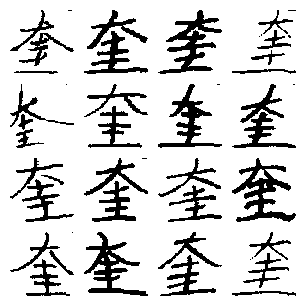 奎奎奎奎
奎奎奎奎
奎奎奎奎
奎奎奎奎